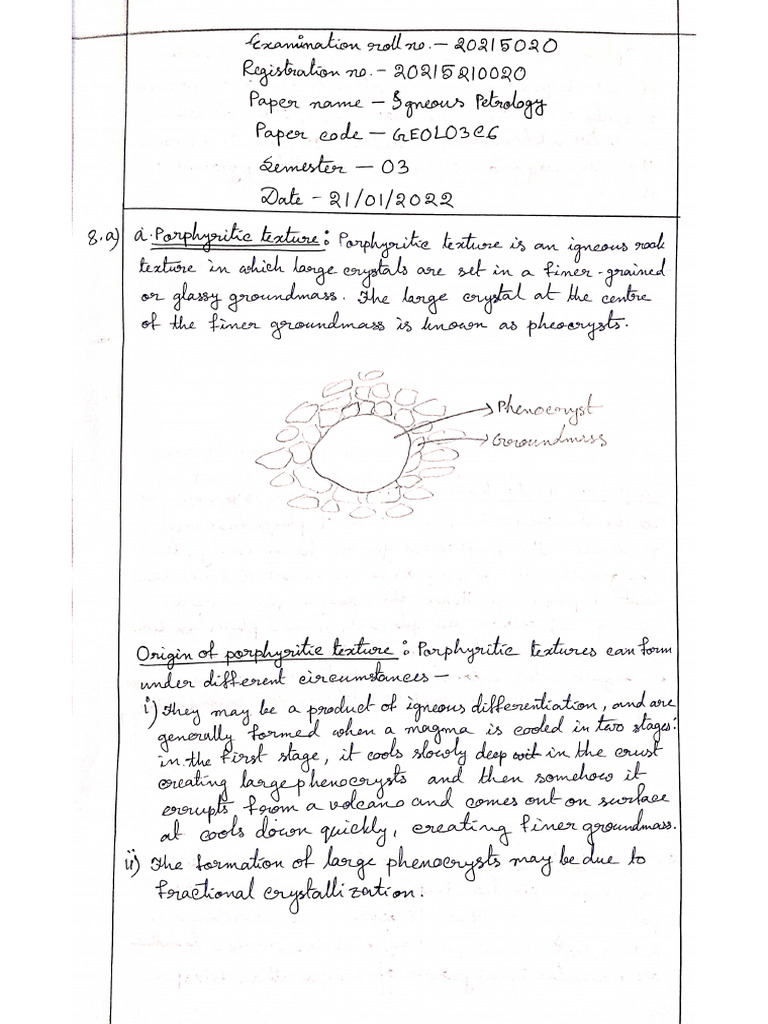 Examination roll no. - 20215020
Registration no. - 20215210020
Paper name - Igneous Petrology
Paper code - GEOL03C6
Semester - 03
Date - 21/01/2022
8.a) a. Porphyritic texture: Porphyritic texture is an igneous rock
texture in which large crystals are set in a finer-grained
or glassy groundmass. The large crystal at the centre
of the finer groundmass is known as pheocrysts.
Phenocryst
Groundmass
Origin of porphyritic texture: Porphyritic textures can form
under different circumstances -
i) They may be a product of igneous differentiation, and are
generally formed when a magma is cooled in two stages:
in the first stage, it cools slowly deep in the crust
creating large phenocrysts and then somehow it
errupts from a volcano and comes out on surface
at cools down quickly, creating finer groundmass.
ii) The formation of large phenocrysts may be due to
fractional crystallization.